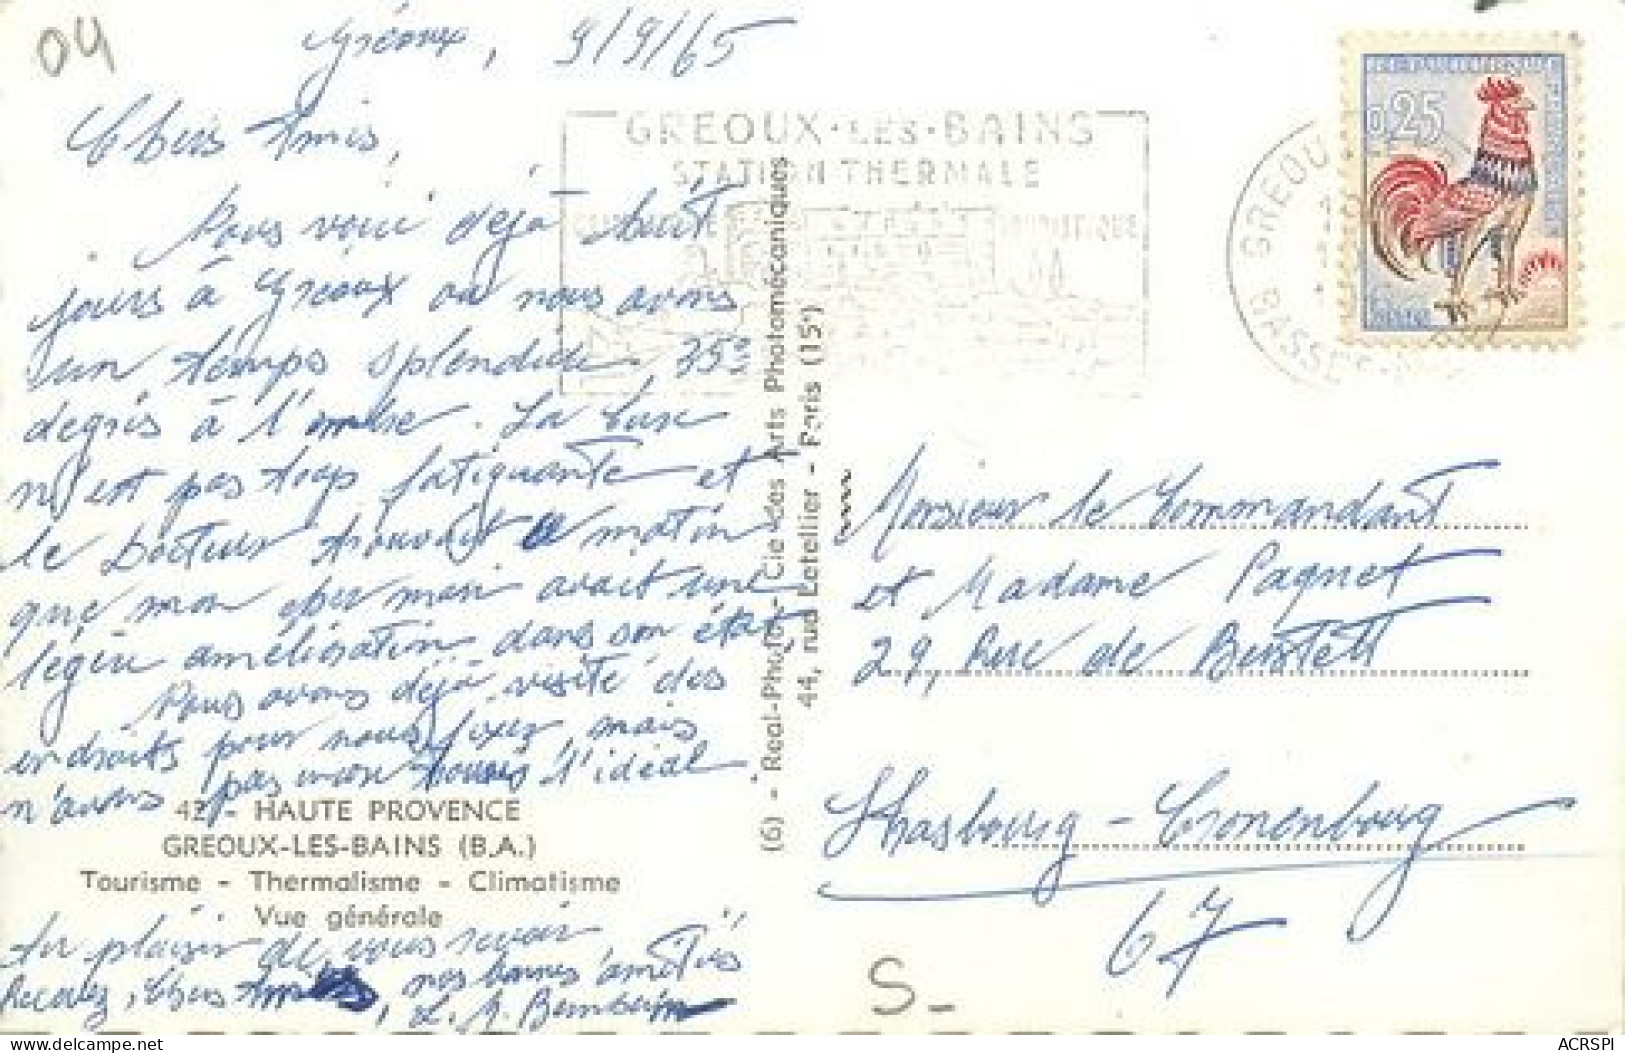 04
Gréoux, 9/9/65
Chers Amis,
Nous voici déjà huit
jours à Gréoux où nous avons
un temps splendide. 35°
degrés à l'ombre. La cure
n'est pas trop fatiguante et
le Docteur trouvait ce matin
que mon cher mari avait une
légère amélioration dans son état.
Nous avons déjà visité des
endroits pour nous fixer, mais
n'avons pas encore trouvé l'idéal.
42 - HAUTE PROVENCE
GREOUX-LES-BAINS (B.A.)
Tourisme - Thermalisme - Climatisme
Vue générale
Au plaisir de vous revoir
Recevez, Chers Amis, nos bonnes amitiés
(6) - Real-Photo - Cie des Arts Photomécaniques
44, rue Letellier - Paris (15°)
GREOUX·LES·BAINS
STATION THERMALE
TOURISTIQUE
GREOU
BASSES-A
0,25
Monsieur le Commandant
et Madame Pagnet
29, Rue de
Strasbourg - Cronenbourg
67
S-
delcampe.net
ACRSPI